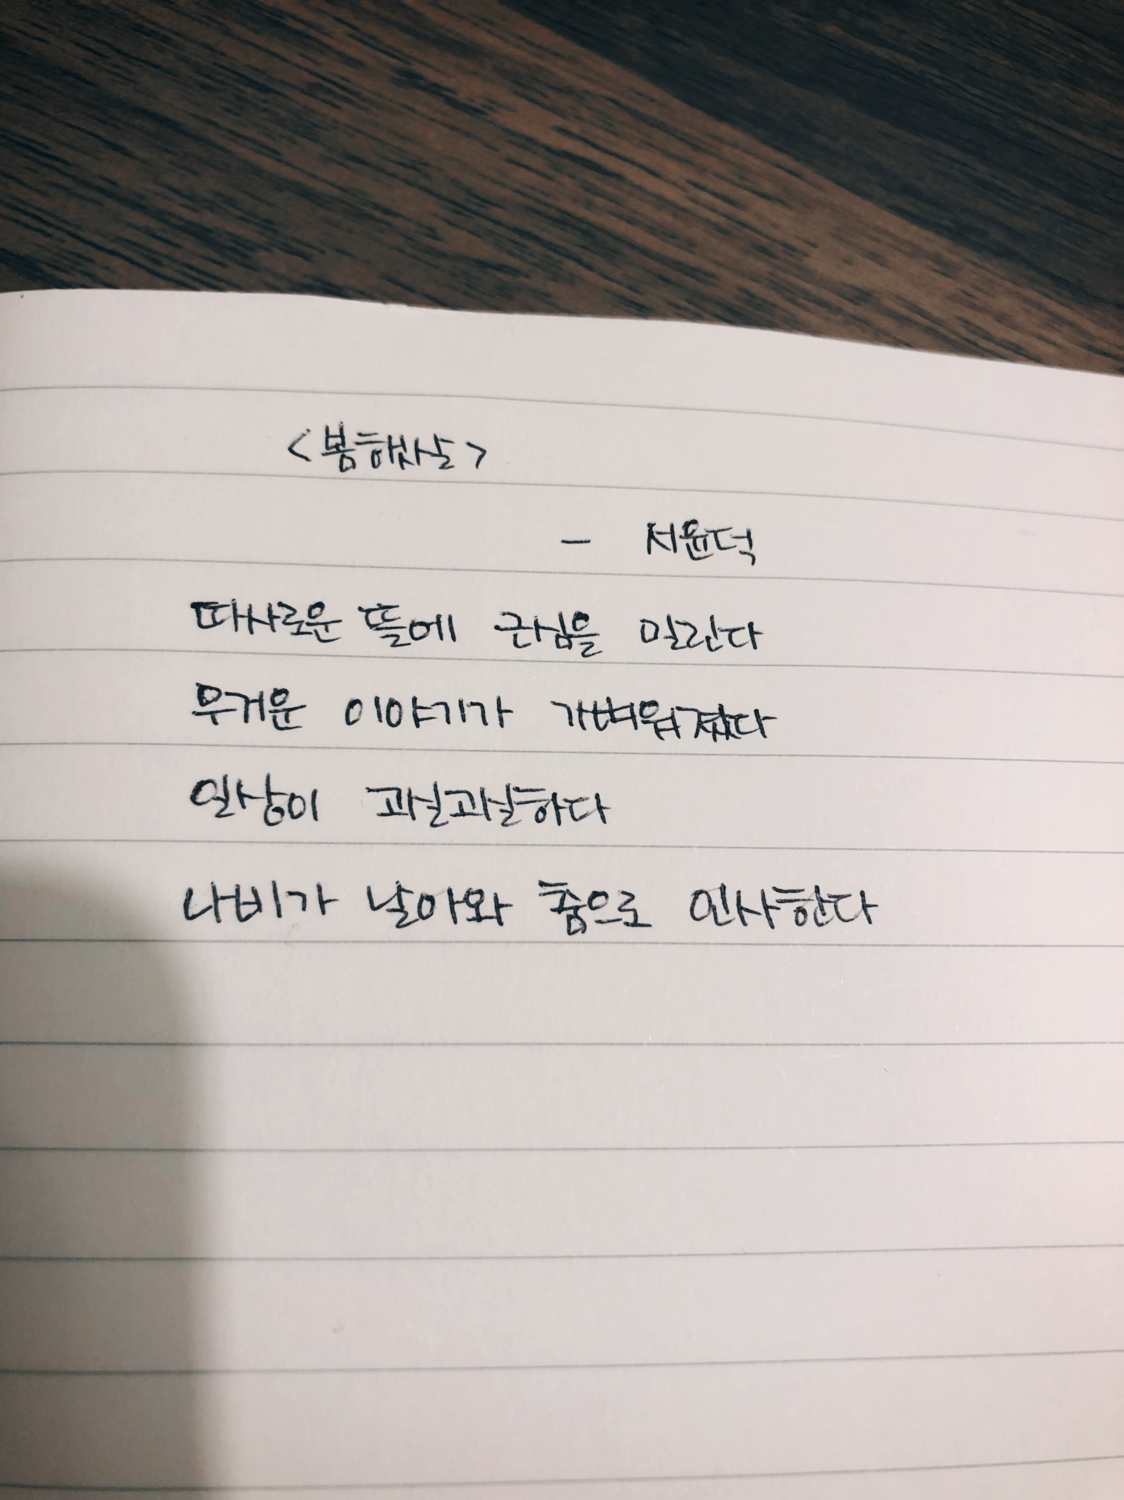 <봄햇살>
- 서윤덕
따사로운 뜰에 근심을 말린다
무거운 이야기가 가벼워졌다
일상이 괜찮괜찮하다
나비가 날아와 춤으로 인사한다